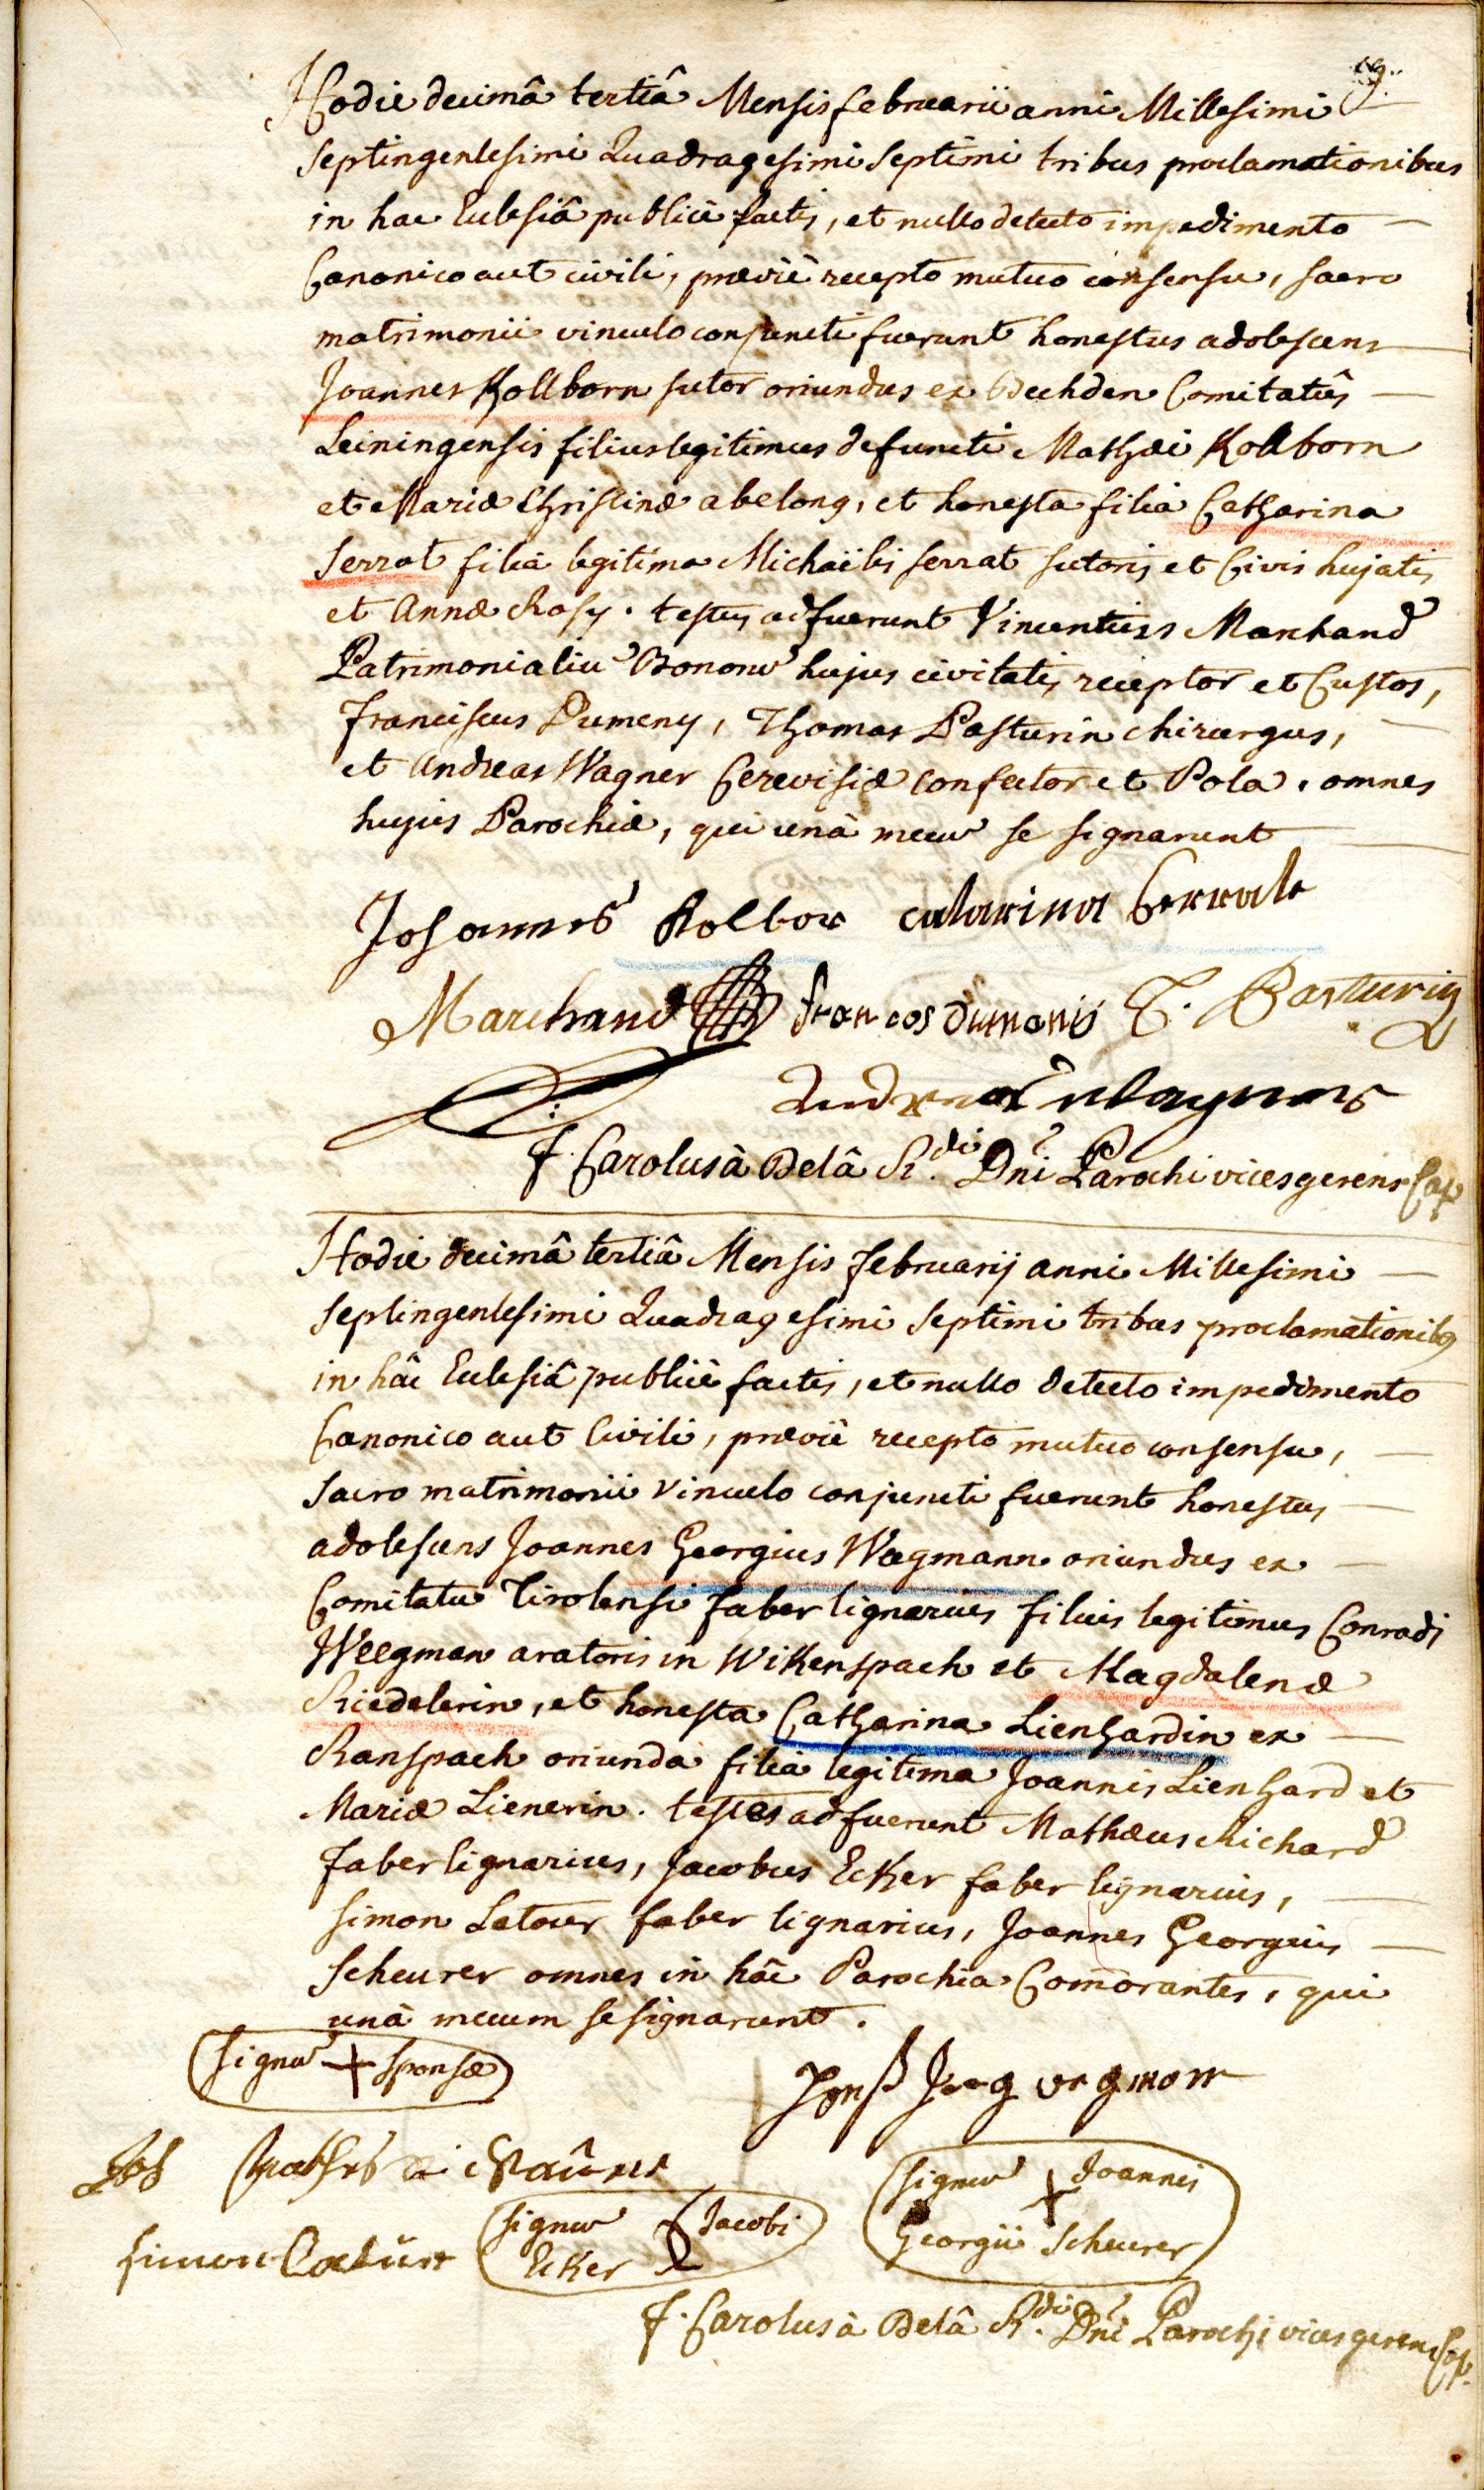 69.
Hodie decimâ tertiâ Mensis februarii anni Millesimi
Septingentesimi Quadragesimi Septimi tribus proclamationibus
in hac Ecclesiâ publicè factis, et nullo detecto impedimento
Canonico aut civili, præviè recepto mutuo consensu, sacro
matrimonii vinculo conjuncti fuerunt honestus adolescens
Joannes Kollborn sutor oriundus ex Comitatûs
Leiningensis filius legitimus defuncti Mathæi Kollborn
et Mariæ Christinæ abelong, et honesta filia Catharina
Serrat filia legitima Michaëlis Serrat sutoris et Civis hujatis
et Annæ Rosy. testes adfuerunt Vincentius Marchand
Patrimonialiu Bonoru hujus civitatis receptor et Custos,
Franciscus Dumeny, Thomas Pasturin chirurgus,
et Andreas Wagner Cerevisiæ confector et Pola. omnes
hujus Parochiæ, qui unà mecu se signarunt
Johannes Kolbor catarina Serrate
Marchand francos dumenis T. Pasturin
Andreas
f. Carolus à Delâ R.di Dni Parochi vicesgerens Cap
Hodie decimâ tertiâ Mensis februarij anni Millesimi
Septingentesimi Quadragesimi Septimi tribus proclamationibg
in hâc Ecclesiâ publicè factis, et nullo detecto impedimento
Canonico aut Civili, præviè recepto mutuo consensu,
sacro matrimonii vinculo conjuncti fuerunt honestus
adolescens Joannes Georgius Wegmann oriundus ex
Comitatu Tirolensi faber lignarius filius legitimus Conradi
Weegman aratoris in Wikenspach et Magdalenæ
Riedelerin, et honesta Catharina Lienhardin ex
Ranspach oriunda filia legitima Joannis Lienhard et
Mariæ Lienerin. testes adfuerunt Mathæus Richard
faber lignarius, Jacobus Ecker faber lignarius,
Simon Latour faber lignarius, Joannes Georgius
Scheurer omnes in hâc Parochia Com̄orantes, qui
unà mecum se signarunt.
signu + sponsæ
Hanß Jerg vegman
signu + Joannis
Georgii Scheurer
signu Jacobi
Ecker
simon Latur
f. Carolus à Delâ R.di Dni Parochi vicesgerens Cap.